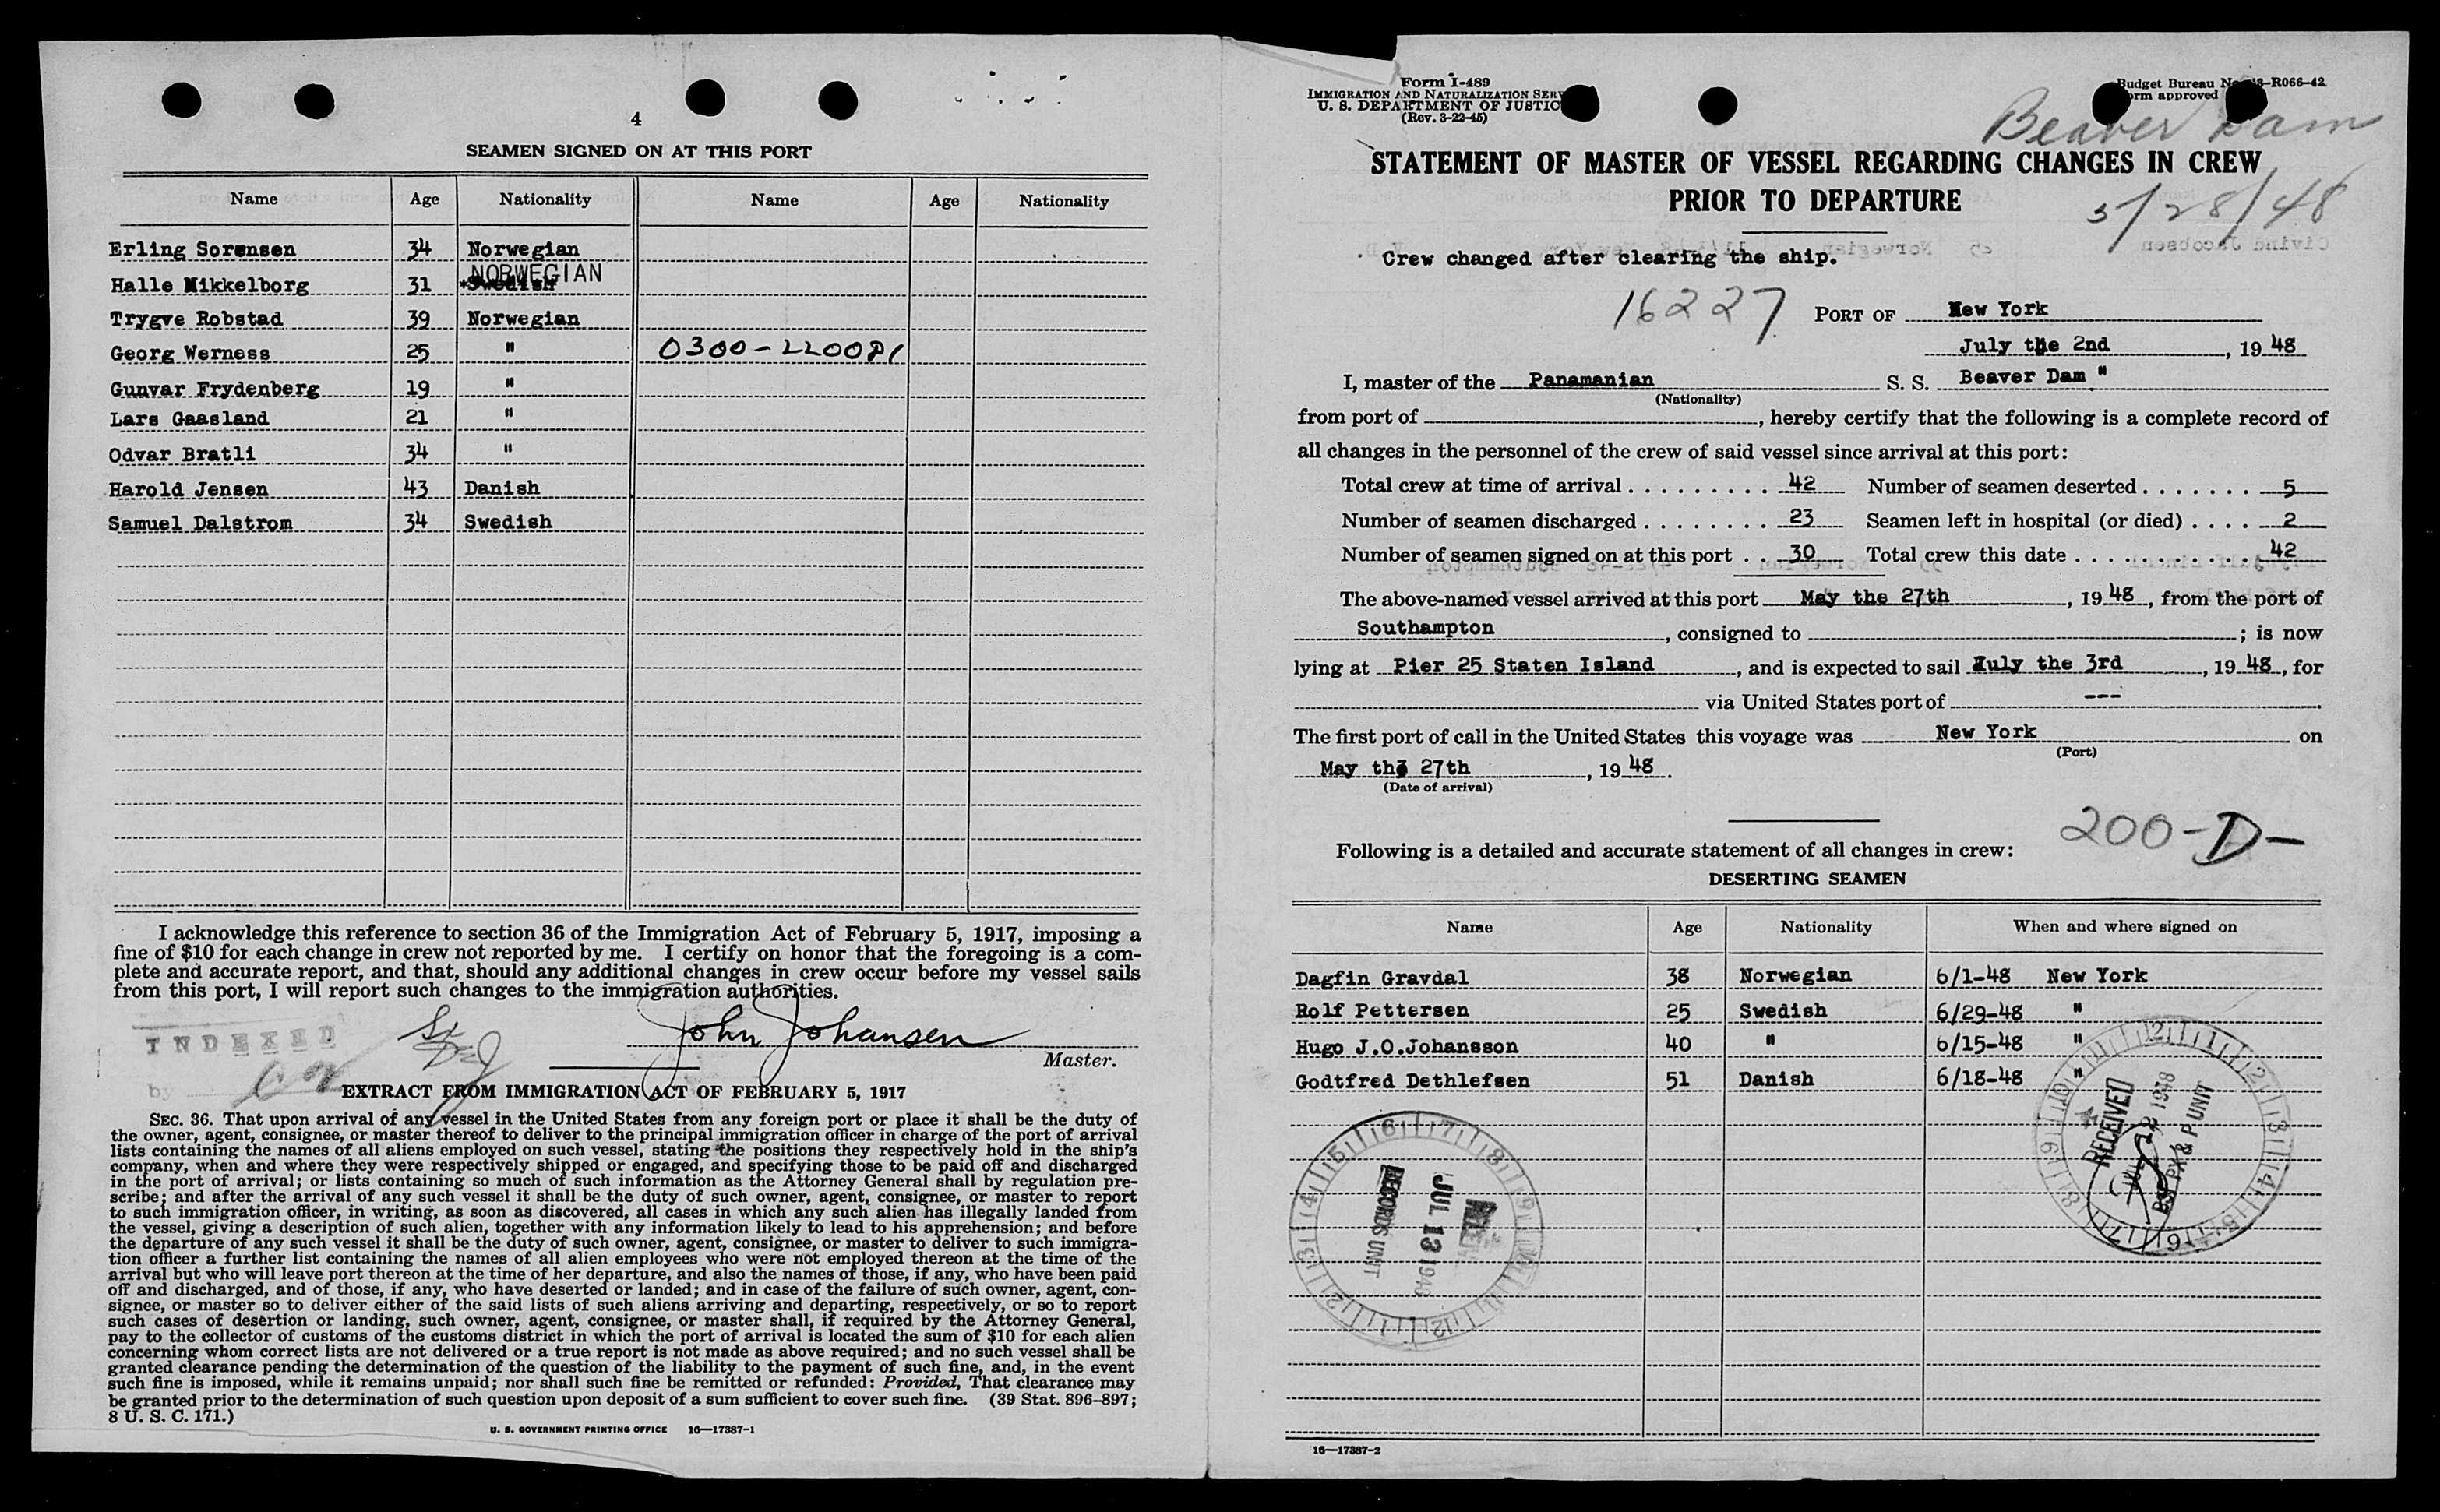 4
SEAMEN SIGNED ON AT THIS PORT
Name Age Nationality Name Age Nationality
Erling Sorensen 34 Norwegian
Halle Mikkelborg 31 *Swedish NORWEGIAN
Trygve Robstad 39 Norwegian
Georg Werness 25 "
Gunvar Frydenberg 19 "
Lars Gaasland 21 "
Odvar Bratli 34 "
Harold Jensen 43 Danish
Samuel Dalstrom 34 Swedish
I acknowledge this reference to section 36 of the Immigration Act of February 5, 1917, imposing a
fine of $10 for each change in crew not reported by me. I certify on honor that the foregoing is a com-
plete and accurate report, and that, should any additional changes in crew occur before my vessel sails
from this port, I will report such changes to the immigration authorities.
INDEXED
by
John Johansen
Master.
EXTRACT FROM IMMIGRATION ACT OF FEBRUARY 5, 1917
SEC. 36. That upon arrival of any vessel in the United States from any foreign port or place it shall be the duty of
the owner, agent, consignee, or master thereof to deliver to the principal immigration officer in charge of the port of arrival
lists containing the names of all aliens employed on such vessel, stating the positions they respectively hold in the ship's
company, when and where they were respectively shipped or engaged, and specifying those to be paid off and discharged
in the port of arrival; or lists containing so much of such information as the Attorney General shall by regulation pre-
scribe; and after the arrival of any such vessel it shall be the duty of such owner, agent, consignee, or master to report
to such immigration officer, in writing, as soon as discovered, all cases in which any such alien has illegally landed from
the vessel, giving a description of such alien, together with any information likely to lead to his apprehension; and before
the departure of any such vessel it shall be the duty of such owner, agent, consignee, or master to deliver to such immigra-
tion officer a further list containing the names of all alien employees who were not employed thereon at the time of the
arrival but who will leave port thereon at the time of her departure, and also the names of those, if any, who have been paid
off and discharged, and of those, if any, who have deserted or landed; and in case of the failure of such owner, agent, con-
signee, or master so to deliver either of the said lists of such aliens arriving and departing, respectively, or so to report
such cases of desertion or landing, such owner, agent, consignee, or master shall, if required by the Attorney General,
pay to the collector of customs of the customs district in which the port of arrival is located the sum of $10 for each alien
concerning whom correct lists are not delivered or a true report is not made as above required; and no such vessel shall be
granted clearance pending the determination of the question of the liability to the payment of such fine, and, in the event
such fine is imposed, while it remains unpaid; nor shall such fine be remitted or refunded: Provided, That clearance may
be granted prior to the determination of such question upon deposit of a sum sufficient to cover such fine. (39 Stat. 896–897;
8 U. S. C. 171.)
U. S. GOVERNMENT PRINTING OFFICE 16—17387-1
Form I-489
IMMIGRATION AND NATURALIZATION SERV
U. S. DEPARTMENT OF JUSTIC
(Rev. 3-22-45)
Budget Bureau No. -R066-42
orm approved
Beaver Dam
STATEMENT OF MASTER OF VESSEL REGARDING CHANGES IN CREW
PRIOR TO DEPARTURE
5/28/48
Crew changed after clearing the ship.
16227 PORT OF New York
July the 2nd, 19 48
I, master of the Panamanian S. S. Beaver Dam "
(Nationality)
from port of , hereby certify that the following is a complete record of
all changes in the personnel of the crew of said vessel since arrival at this port:
Total crew at time of arrival 42 Number of seamen deserted 5
Number of seamen discharged 23 Seamen left in hospital (or died) 2
Number of seamen signed on at this port 30 Total crew this date 42
The above-named vessel arrived at this port May the 27th, 19 48, from the port of
Southampton, consigned to ; is now
lying at Pier 25 Staten Island, and is expected to sail July the 3rd, 19 48, for
via United States port of ---
The first port of call in the United States this voyage was New York on
(Port)
May the 27th, 19 48.
(Date of arrival)
200-D-
Following is a detailed and accurate statement of all changes in crew:
DESERTING SEAMEN
Name Age Nationality When and where signed on
Dagfin Gravdal 38 Norwegian 6/1-48 New York
Rolf Pettersen 25 Swedish 6/29-48 "
Hugo J.O.Johansson 40 " 6/15-48 "
Godtfred Dethlefsen 51 Danish 6/18-48 "
RECEIVED
1948
PX & P UNIT
JUL 13 1948
RECORDS UNIT
16—17387-2